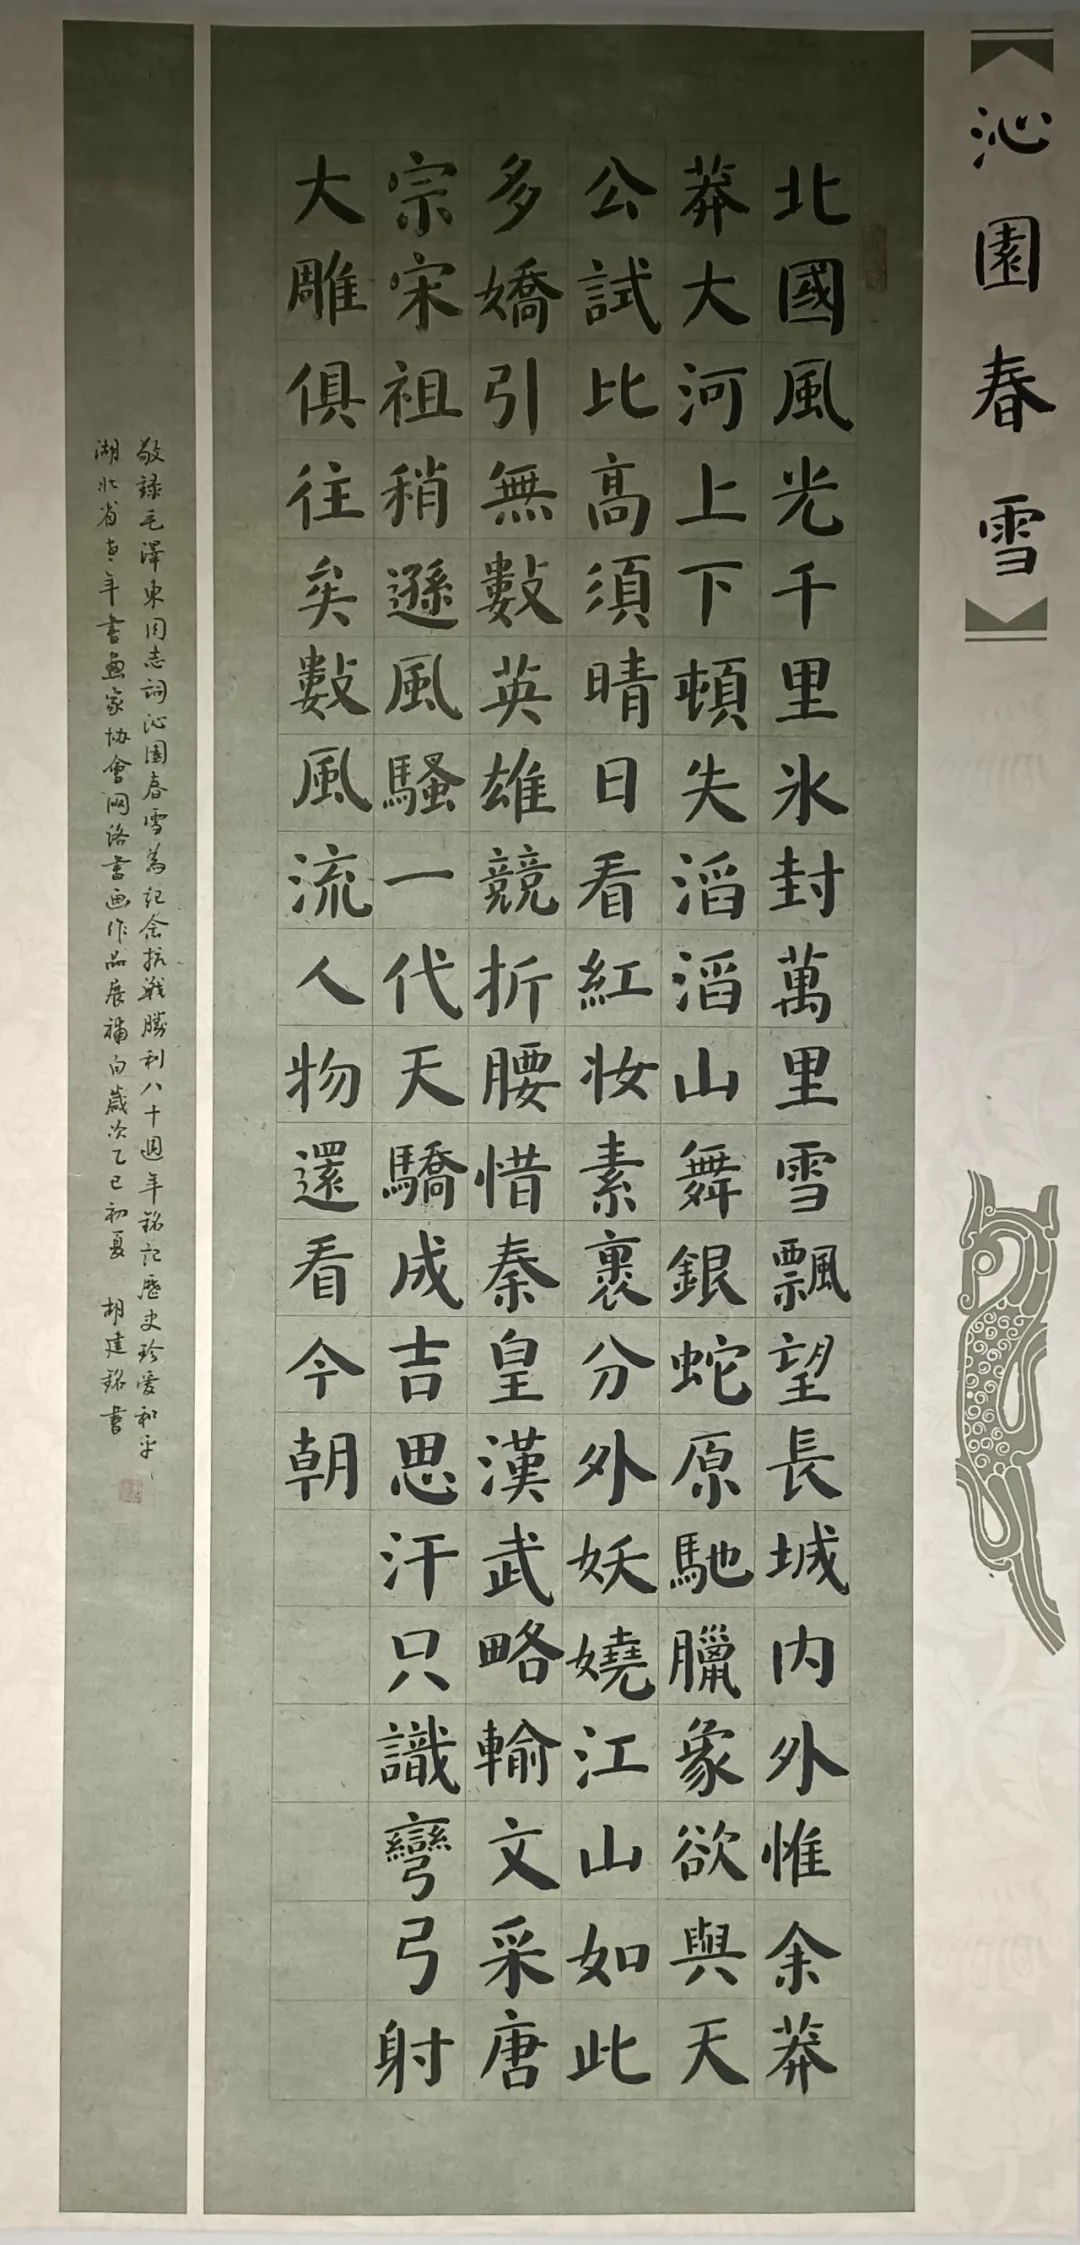 沁園春雪
北國風光千里氷封萬里雪飄望長城内外惟余莽
莽大河上下頓失滔滔山舞銀蛇原馳臘象欲與天
公試比高須晴日看紅妝素裹分外妖嬈江山如此
多嬌引無數英雄競折腰惜秦皇漢武略輸文采唐
宗宋祖稍遜風騷一代天驕成吉思汗只識彎弓射
大雕俱往矣數風流人物還看今朝
敬録毛澤東同志詞沁園春雪為紀念抗戰勝利八十週年銘記歷史珍愛和平
湖北省老年書畫家协會网洛書画作品展補白歲次乙巳初夏 胡建銘書